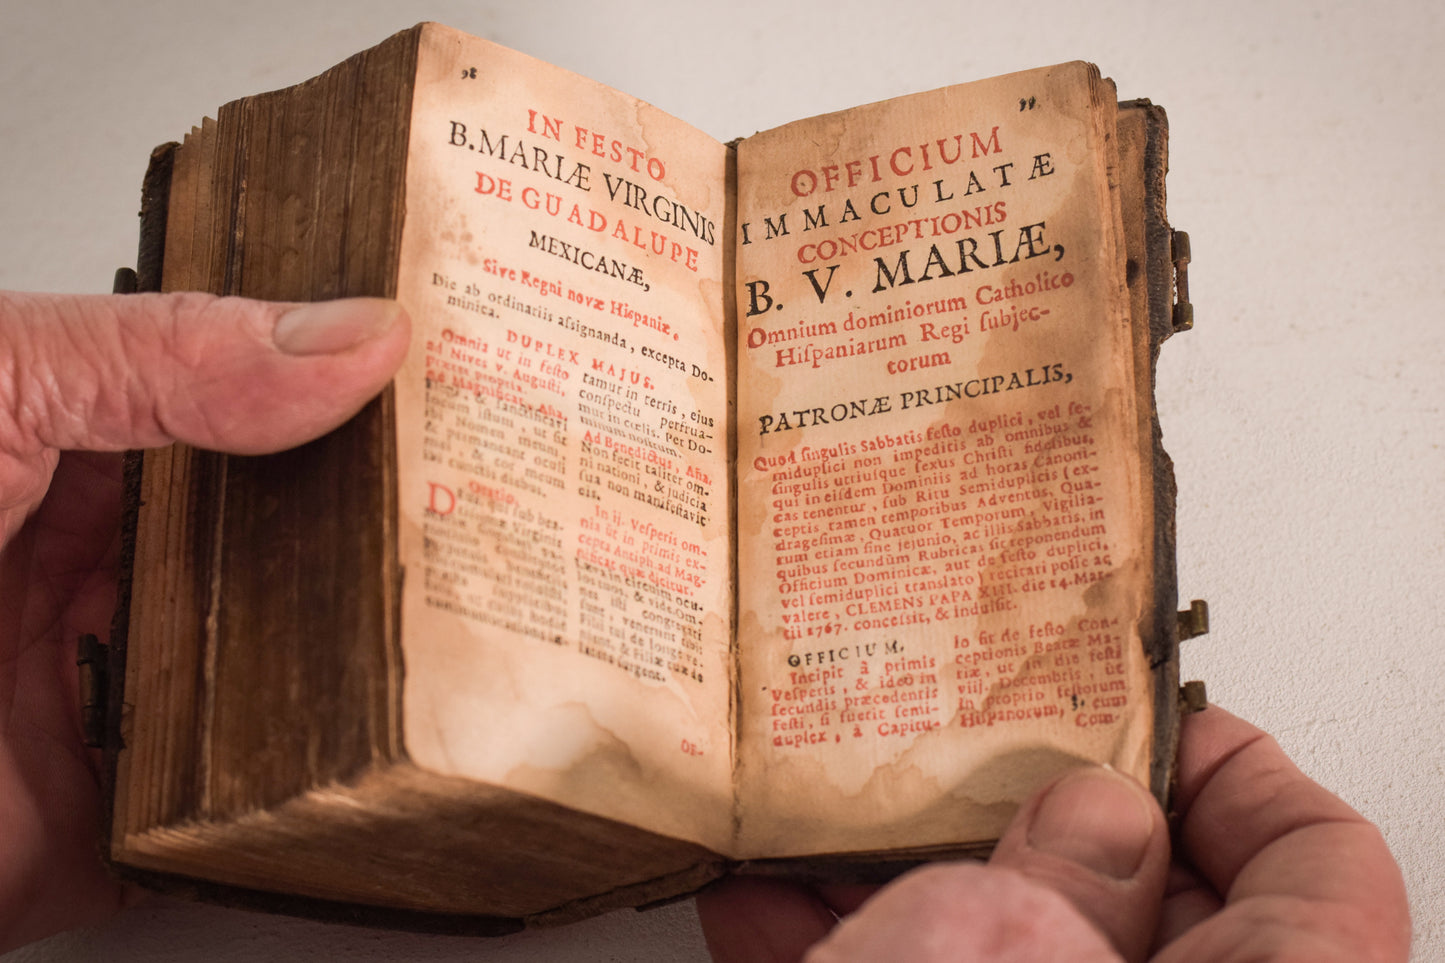 IN FESTO
B. MARIÆ VIRGINIS
DE GUADALUPE
MEXICANÆ,
Sive Regni novæ Hispaniæ.
Die ab ordinariis assignanda, excepta Do-
minica.
DUPLEX MAJUS.
Omnia ut in festo
ad Nives v. Augusti,
præter propria.
Ad Magnificat, Aña.
& sanctificavi
locum istum, ut sit
ibi Nomen meum,
& permaneant oculi
mei, & cor meum
ibi cunctis diebus.
Oratio.
tamur in terris, ejus
conspectu perfrua-
mur in cœlis. Per Do-
minum nostrum.
Ad Benedictus, Aña.
Non fecit taliter om-
ni nationi, & judicia
sua non manifestavit
eis.
In ij. Vesperis om-
nia ut in primis ex-
cepta Antiph. ad Mag-
nificat quæ dicitur.
Leva in circuitu ocu-
los tuos, & vide. Om-
nes isti congregati
sunt, venerunt tibi
Filii tui de longe ve-
nient, & Filiæ tuæ de
latere surgent.
OF-
OFFICIUM
IMMACULATÆ
CONCEPTIONIS
B. V. MARIÆ,
Omnium dominiorum Catholico
Hiſpaniarum Regi ſubjec-
torum
PATRONÆ PRINCIPALIS,
Quod ſingulis Sabbatis feſto duplici, vel ſe-
miduplici non impeditis ab omnibus &
ſingulis utriuſque ſexus Chriſti fidelibus,
qui in eiſdem Dominiis ad horas Canoni-
cas tenentur, ſub Ritu Semiduplicis (ex-
ceptis tamen temporibus Adventus, Qua-
drageſimæ, Quatuor Temporum, Vigilia-
rum etiam ſine jejunio, ac illis Sabbatis, in
quibus ſecundùm Rubricas ſit reponendum
Officium Dominicæ, aut de feſto duplici,
vel ſemiduplici translato) recitari poſſe ac
valere, CLEMENS PAPA XIII. die 14. Mar-
tii 1767. conceſſit, & indulſit.
OFFICIUM.
Incipit à primis
Veſperis, & ideò in
ſecundis præcedentis
feſti, ſi fuerit ſemi-
duplex, à Capitu-
lo fit de feſto Con-
ceptionis Beatæ Ma-
riæ, ut in die feſti
viij. Decembris, ùt
in proprio feſtorum
Hiſpanorum, cum
Com-